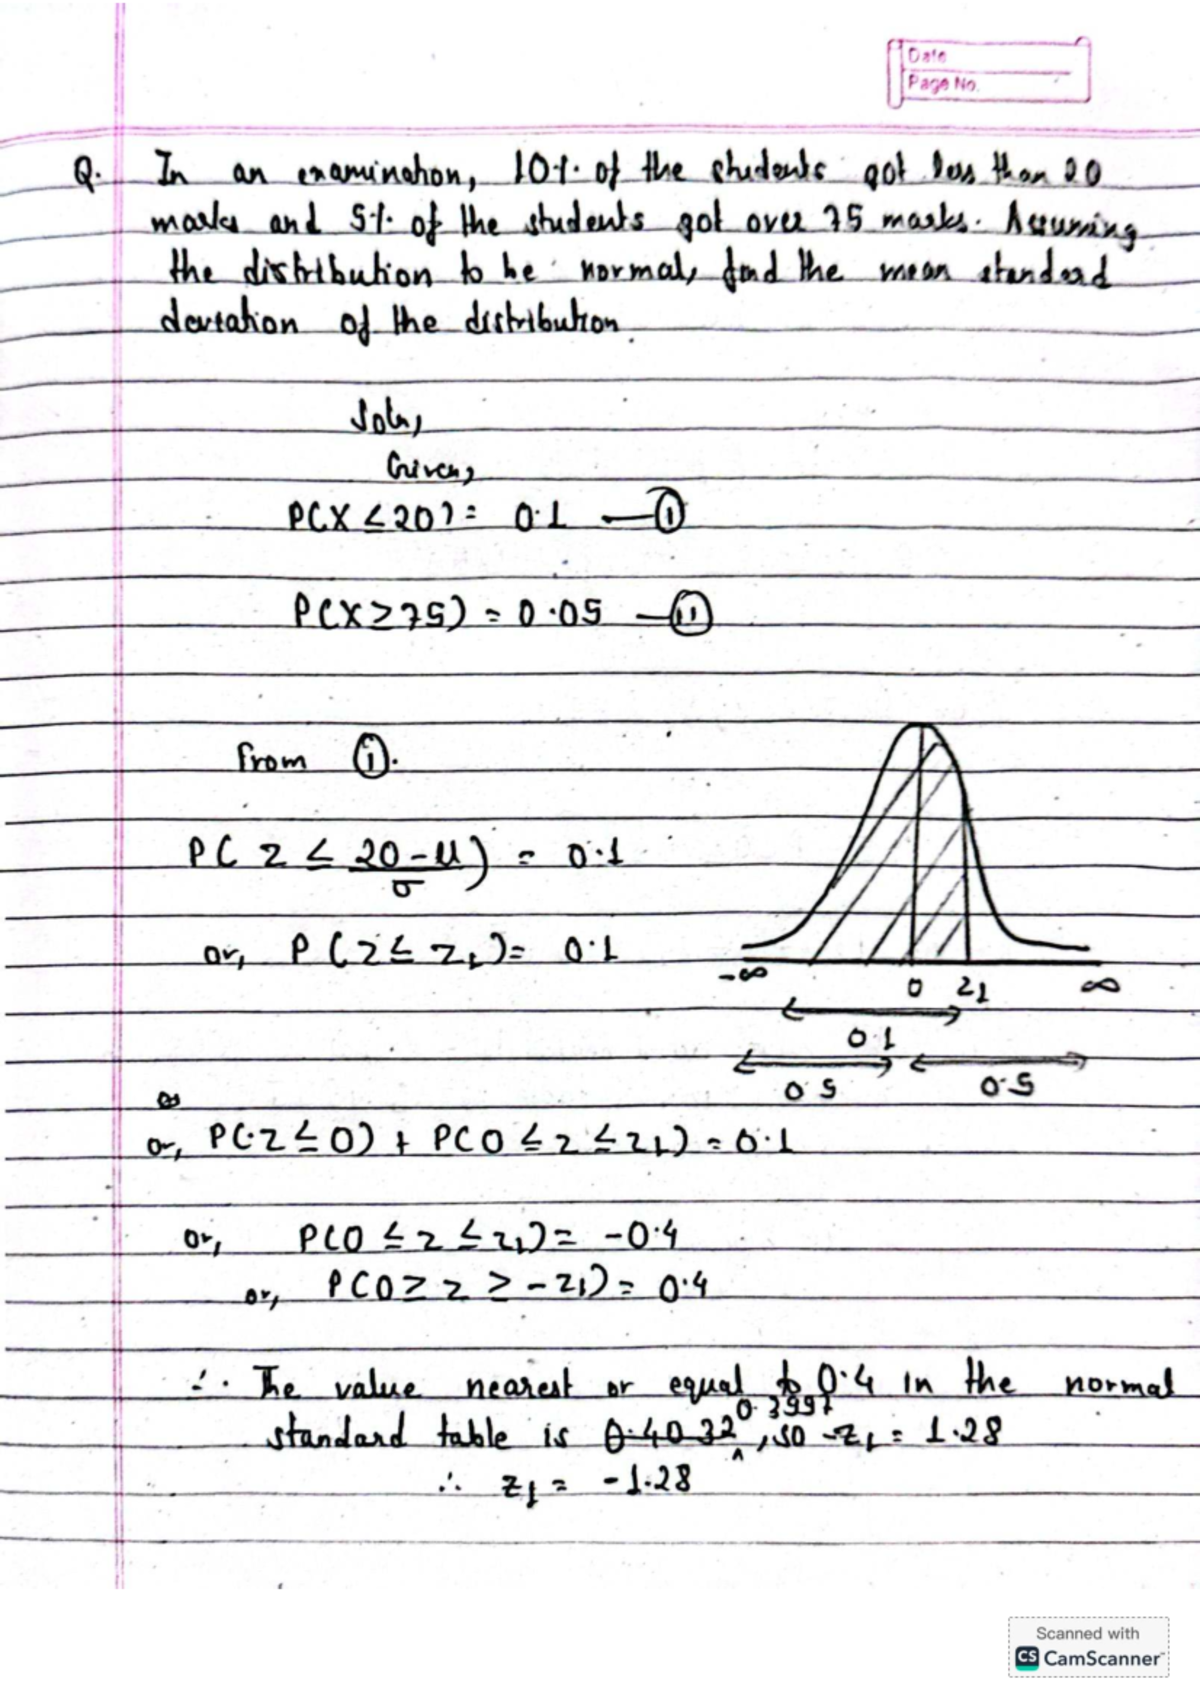 Date
Page No.
Q. In an examination, 10% of the students got less than 20
marks and 5% of the students got over 75 marks. Assuming
the distribution to be normal, find the mean standard
deviation of the distribution.
Soln,
Given,
P(X ≤ 20) = 0.1 — (i)
P(X ≥ 75) = 0.05 — (ii)
From (i).
P( z ≤ (20-μ)/σ ) = 0.1
or, P (z ≤ z1) = 0.1
-∞ 0 z1 ∞
0.1
0.5 0.5
or, P(z ≤ 0) + P(0 ≤ z ≤ z1) = 0.1
or, P(0 ≤ z ≤ z1) = -0.4
or, P(0 ≥ z ≥ -z1) = 0.4
∴ The value nearest or equal to 0.4 in the normal
standard table is 0.4032 0.3997, so -z1 = 1.28
∴ z1 = -1.28
Scanned with
CS CamScanner